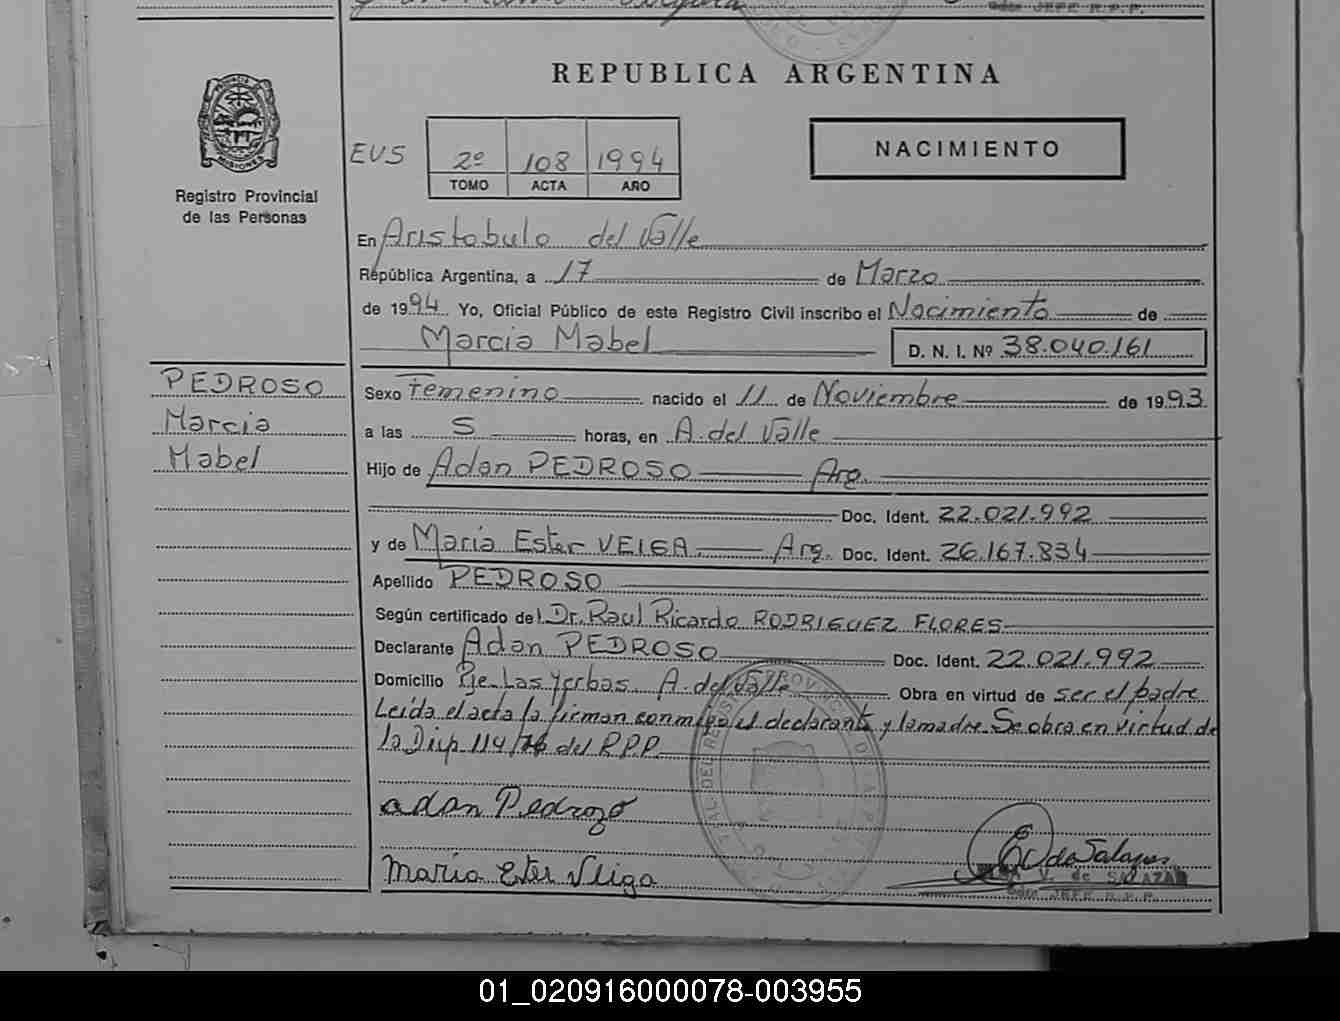 REPUBLICA ARGENTINA
PROVINCIA DE
MISIONES
Registro Provincial
de las Personas
EVS
2º 108 1994
TOMO ACTA AÑO
NACIMIENTO
En Aristobulo del Valle
República Argentina, a 17 de Marzo
de 1994 Yo, Oficial Público de este Registro Civil inscribo el Nacimiento de
Marcia Mabel D. N. I. Nº 38.040.161
PEDROSO
Marcia
Mabel
Sexo Femenino nacido el 11 de Noviembre de 1993
a las 5 horas, en A. del Valle
Hijo de Adan PEDROSO Arg.
Doc. Ident. 22.021.992
y de María Ester VEIGA Arg. Doc. Ident. 26.167.834
Apellido PEDROSO
Según certificado del Dr. Raul Ricardo RODRIGUEZ FLORES
Declarante Adan PEDROSO Doc. Ident. 22.021.992
Domicilio Pje. Las Yerbas A. del Valle Obra en virtud de ser el padre
Leída el acta la firman conmigo el declarante y la madre. Se obra en virtud de
la Disp 114/76 del R.P.P.
adan Pedrozo
María Ester Veiga
V. de SALAZAR
JEFE R.P.P.
01_020916000078-003955